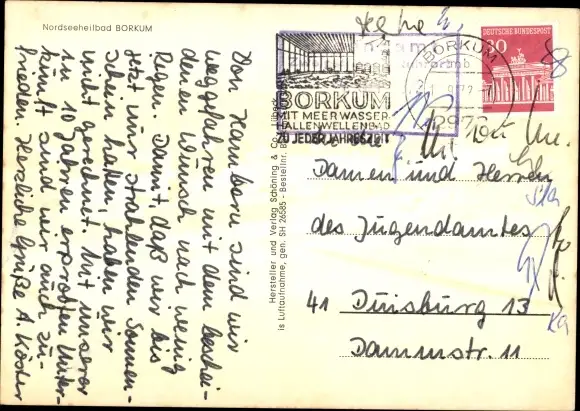 Nordseeheilbad BORKUM
Von Hamburg sind wir
weggefahren mit dem beschei-
denen Wunsch nach wenig
Regen. Damit, daß wir bis
jetzt nur strahlenden Sonnen-
schein hatten, haben wir
nicht gerechnet. Mit unserer
in 10 Jahren erprobten Unter-
kunft sind wir auch zu-
frieden. Herzliche Grüße A. Köster
Hersteller und Verlag Schöning & Co., Lübeck
is Luftaufnahme, gen. SH 26585 - Bestellnr. B
BORKUM
MIT MEERWASSER
HALLENWELLENBAD
ZU JEDER JAHRESZEIT
BORKUM
DEUTSCHE BUNDESPOST
30
Damen und Herren
des Jugendamtes
41 Duisburg 13
Dammstr. 11